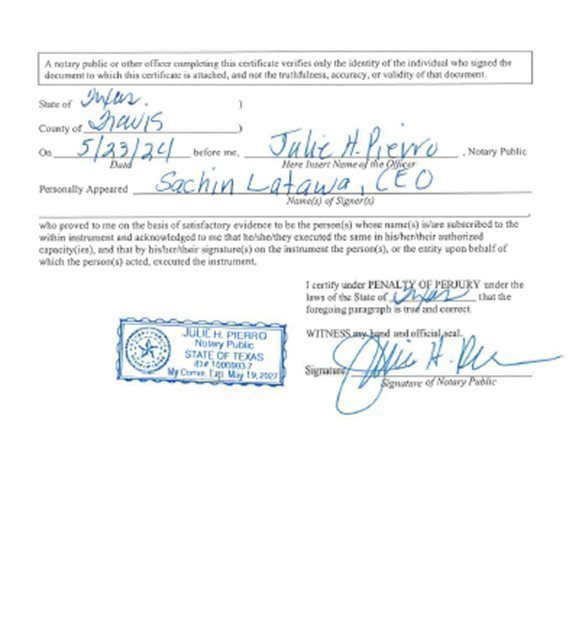 A notary public or other officer completing this certificate verifies only the identity of the individual who signed the
document to which this certificate is attached, and not the truthfulness, accuracy, or validity of that document.
State of Texas. )
County of Travis )
On 5/23/24 before me, Julie H. Pierro, Notary Public
Date Here Insert Name of the Officer
Personally Appeared Sachin Latawa, CEO
Name(s) of Signer(s)
who proved to me on the basis of satisfactory evidence to be the person(s) whose name(s) is/are subscribed to the
within instrument and acknowledged to me that he/she/they executed the same in his/her/their authorized
capacity(ies), and that by his/her/their signature(s) on the instrument the person(s), or the entity upon behalf of
which the person(s) acted, executed the instrument.
I certify under PENALTY OF PERJURY under the
laws of the State of Texas that the
foregoing paragraph is true and correct.
WITNESS my hand and official seal.
Signature
Signature of Notary Public
JULIE H. PIERRO
Notary Public
STATE OF TEXAS
ID#
My Comm. Exp. May 19, 2027